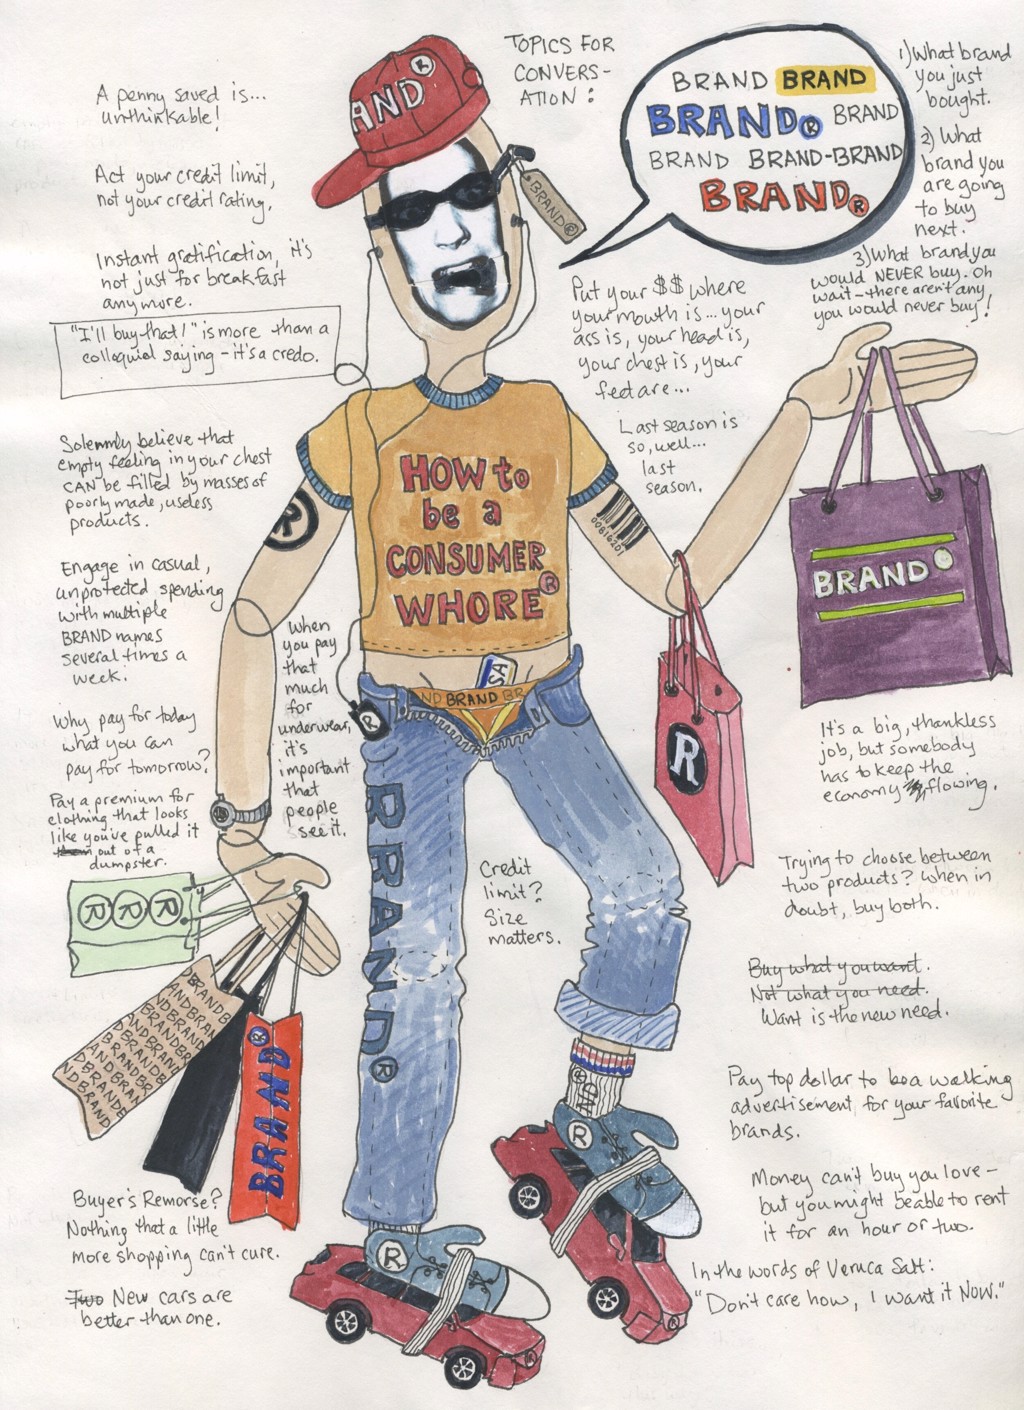 TOPICS FOR
CONVERS-
ATION:
BRAND BRAND
BRAND® BRAND
BRAND BRAND-BRAND
BRAND®
1) What brand
you just
bought.
2) What
brand you
are going
to buy
next.
3) What brand you
would NEVER buy. Oh
wait - there aren't any
you would never buy!
AND®
BRAND®
A penny saved is...
unthinkable!
Act your credit limit,
not your credit rating.
Instant gratification, it's
not just for breakfast
anymore.
"I'll buy that!" is more than a
colloquial saying - it's a credo.
Put your $$ where
your mouth is... your
ass is, your head is,
your chest is, your
feet are...
Last season is
so, well...
last
season.
Solemnly believe that
empty feeling in your chest
CAN be filled by masses of
poorly made, useless
products.
Engage in casual,
unprotected spending
with multiple
BRAND names
several times a
week.
Why pay for today
what you can
pay for tomorrow?
Pay a premium for
clothing that looks
like you've pulled it
them out of a
dumpster.
HOW to
be a
CONSUMER
WHORE®
®
00816201
When
you pay
that
much
for
underwear,
it's
important
that
people
see it.
SA
ND BRAND BR
®
BRAND®
BRAND
®
It's a big, thankless
job, but somebody
has to keep the
economy flowing.
Credit
limit?
Size
matters.
Trying to choose between
two products? When in
doubt, buy both.
Buy what you want.
Not what you need.
Want is the new need.
Pay top dollar to be a walking
advertisement for your favorite
brands.
Money can't buy you love -
but you might be able to rent
it for an hour or two.
In the words of Veruca Salt:
"Don't care how, I want it Now."
® ® ®
BRANDB
ANDBRAN
NDBRAND
BRAND®
Buyer's Remorse?
Nothing that a little
more shopping can't cure.
Two New cars are
better than one.
®
®
®
®